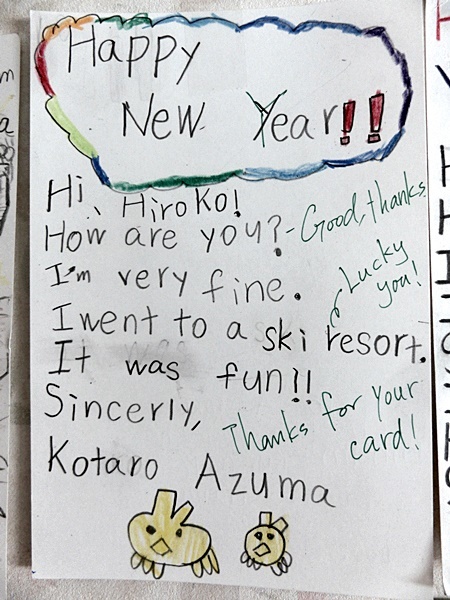 Happy
New Year!!
Hi, Hiroko!
How are you? - Good, thanks
I'm very fine.
Lucky
you!
I went to a ski resort.
It was fun!!
Sincerely,
Thanks for your
card!
Kotaro Azuma